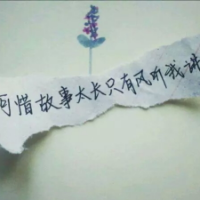 可惜故事太长只有风听我讲